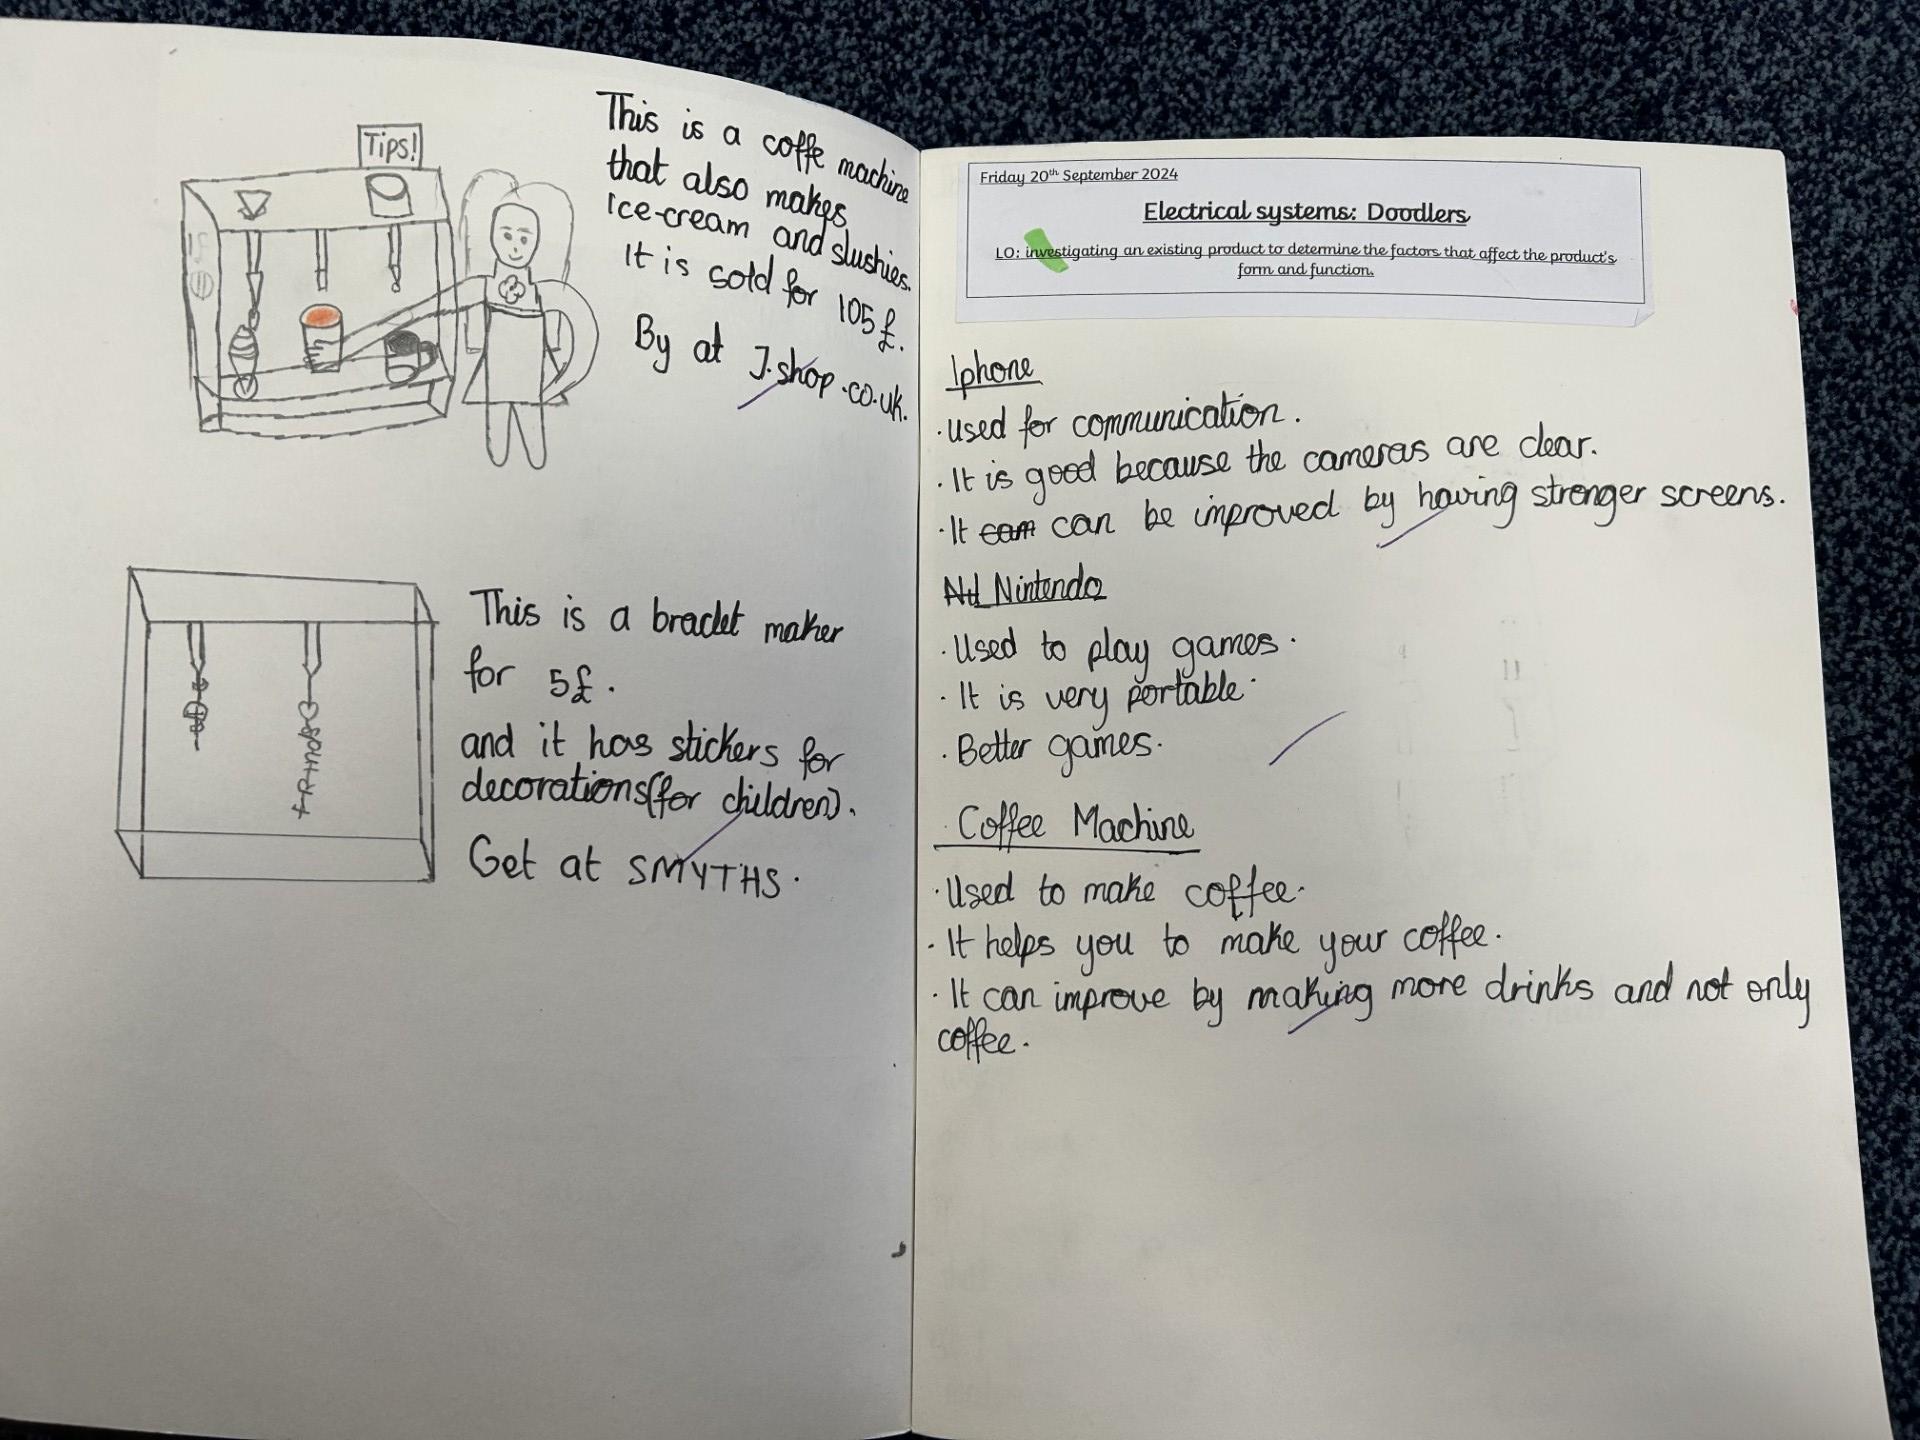 Tips!
This is a coffe machine
that also makes
ice-cream and slushies.
It is sold for 105£.
By at J.shop.co.uk.
This is a braclet maker
for 5£.
and it has stickers for
decorations(for children).
Get at SMYTHS.
Friday 20th September 2024
Electrical systems: Doodlers
LO: investigating an existing product to determine the factors that affect the product's
form and function.
Iphone
·used for communication.
·It is good because the cameras are clear.
·It cam can be improved by having stronger screens.
Nintendo
·Used to play games.
·It is very portable.
·Better games.
Coffee Machine
·Used to make coffee.
·It helps you to make your coffee.
·It can improve by making more drinks and not only
coffee.